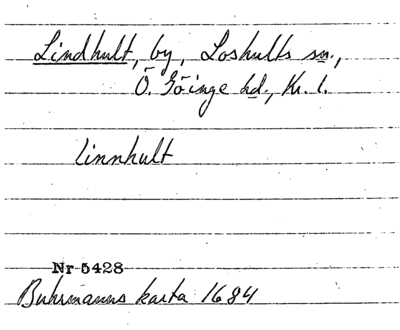 Lindhult, by, Loshults sn.,
Ö. Göinge hd., Kr. l.
linnhult
Nr 5428
Buhrmanns karta 1684